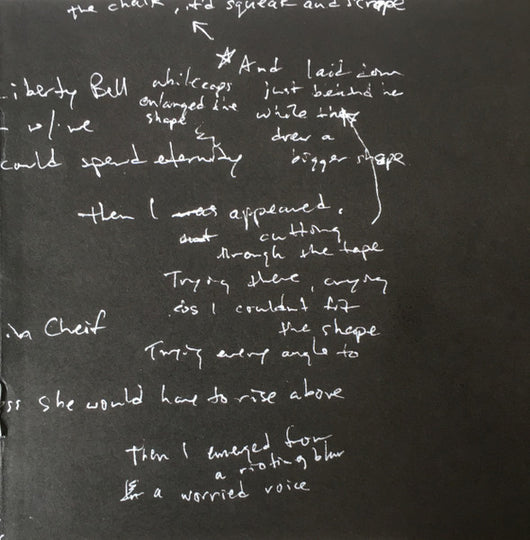 the chalk, it'd squeak and scrape
And laid down
Liberty Bell
while cops
just behind me
enlarged the
shape
while they
w/me
drew a
could spend eternity
bigger shape
then I was appeared.
cutting
through the tape
Trying there, crying
as I couldn't fit
in Cheif
the shape
Trying every angle to
ss she would have to rise above
then I emerged from
a rioting blur
a worried voice